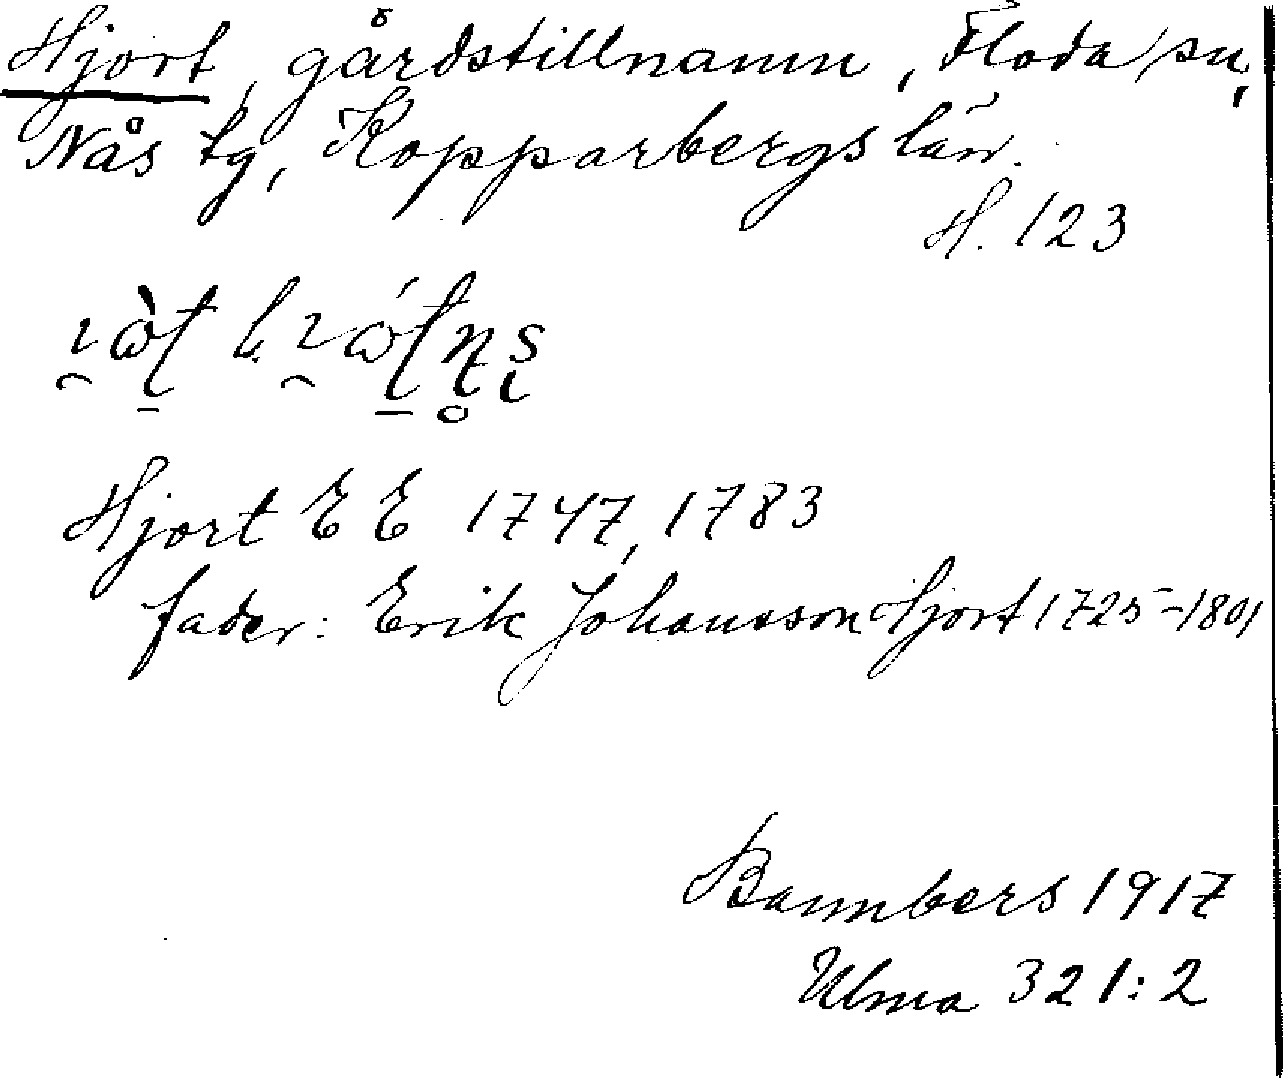 Hjort, gårdstillnamn, Floda sn,
Nås tg, Kopparbergs län.
H. 123
Hjort E E 1747, 1783
fader: Erik Johansson Hjort 1725-1801
Bannbers 1917
Ulma 321:2